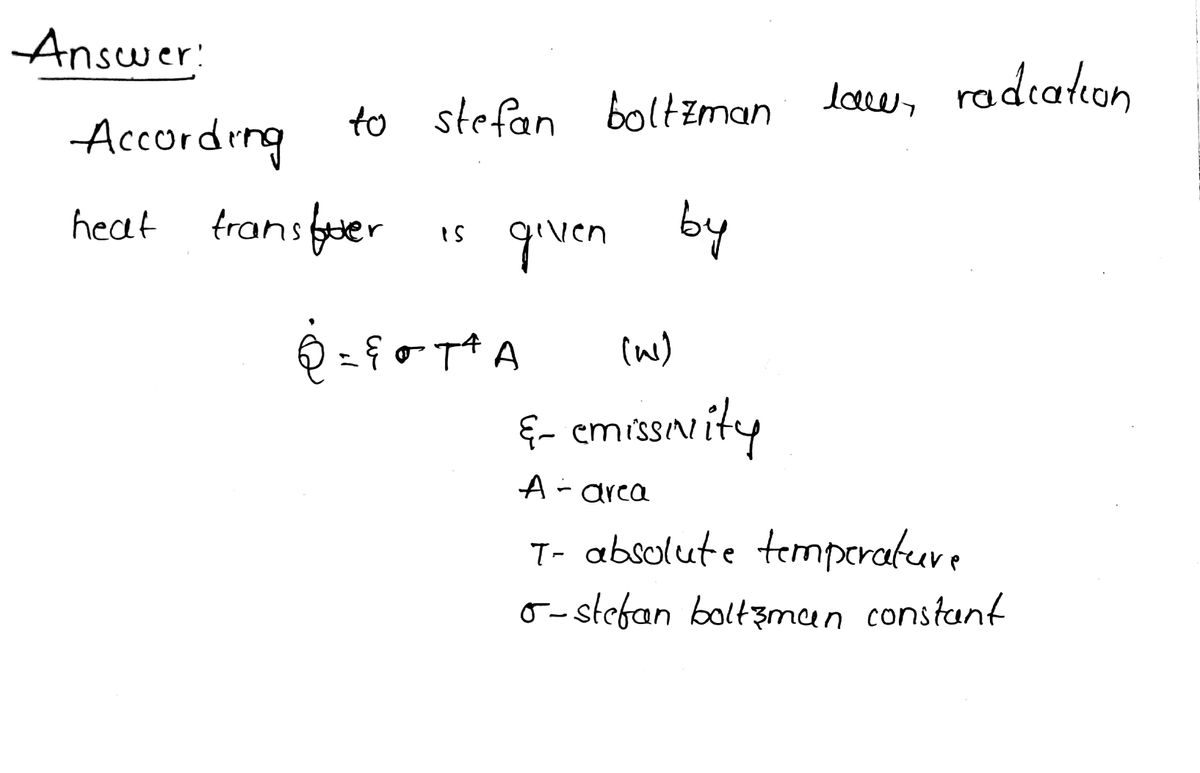 Answer:
According to stefan boltzman law, radiation
heat transfer is given by
Q̇ = ε σ T⁴ A (W)
ε - emissivity
A - area
T - absolute temperature
σ - stefan boltzman constant